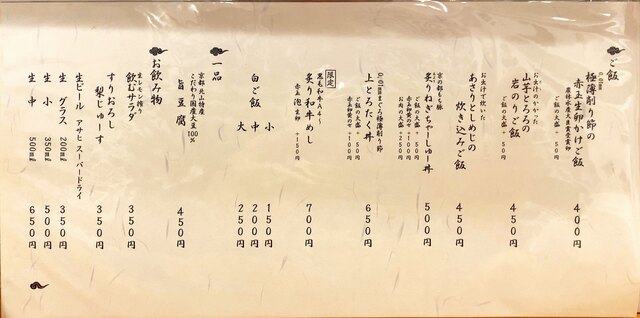 ご飯
極薄削り節の
赤玉生卵かけご飯 400円
農林水産大臣賞受賞卵
ご飯の大盛 +50円
お出汁のかかった
山芋とろろの
岩のりご飯 450円
ご飯の大盛 +50円
お出汁で炊いた
あさりとしめじの
炊き込みご飯 450円
京の都もち豚
炙りねぎちゃーしゅー丼 500円
ご飯の大盛 +50円
お肉の大盛 +250円
赤玉卵黄のせ +100円
まぐろ極薄削り節
上とろたく丼 650円
ご飯の大盛 +50円
赤玉卵黄のせ +100円
限定
黒毛和牛A4〜
炙り和牛めし 700円
赤玉泡生卵 +150円
白ご飯 小 150円
中 200円
大 250円
一品
京都 北山特産
こだわり国産大豆100%
旨豆腐 450円
お飲み物
生レモン搾り
飲むサラダ 350円
すりおろし
梨じゅーす 350円
生ビール アサヒ スーパードライ
生 グラス 200ml 350円
生 小 350ml 500円
生 中 500ml 650円